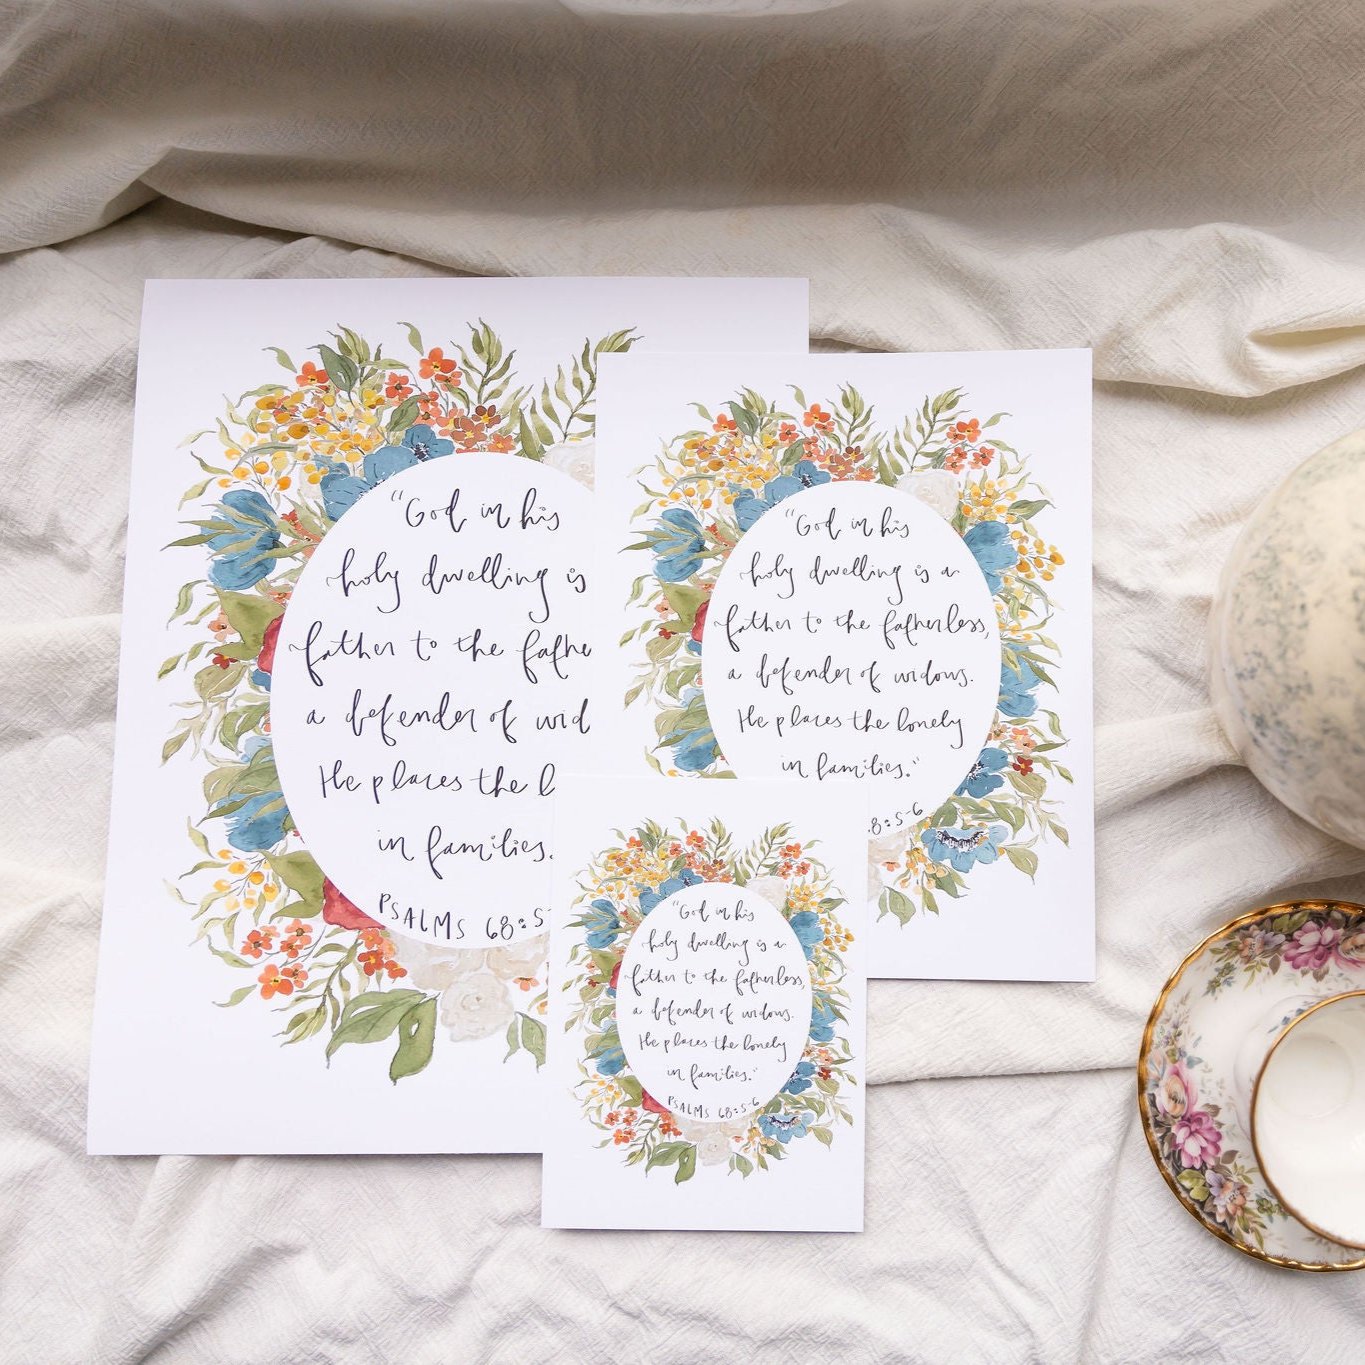 "God in his
holy dwelling is
father to the fathe
a defender of wid
He places the l
in families.
PSALMS 68:5
"God in his
holy dwelling is a
father to the fatherless,
a defender of widows.
He places the lonely
in families."
8:5-6
"God in his
holy dwelling is a
father to the fatherless,
a defender of widows.
He places the lonely
in families."
PSALMS 68:5-6